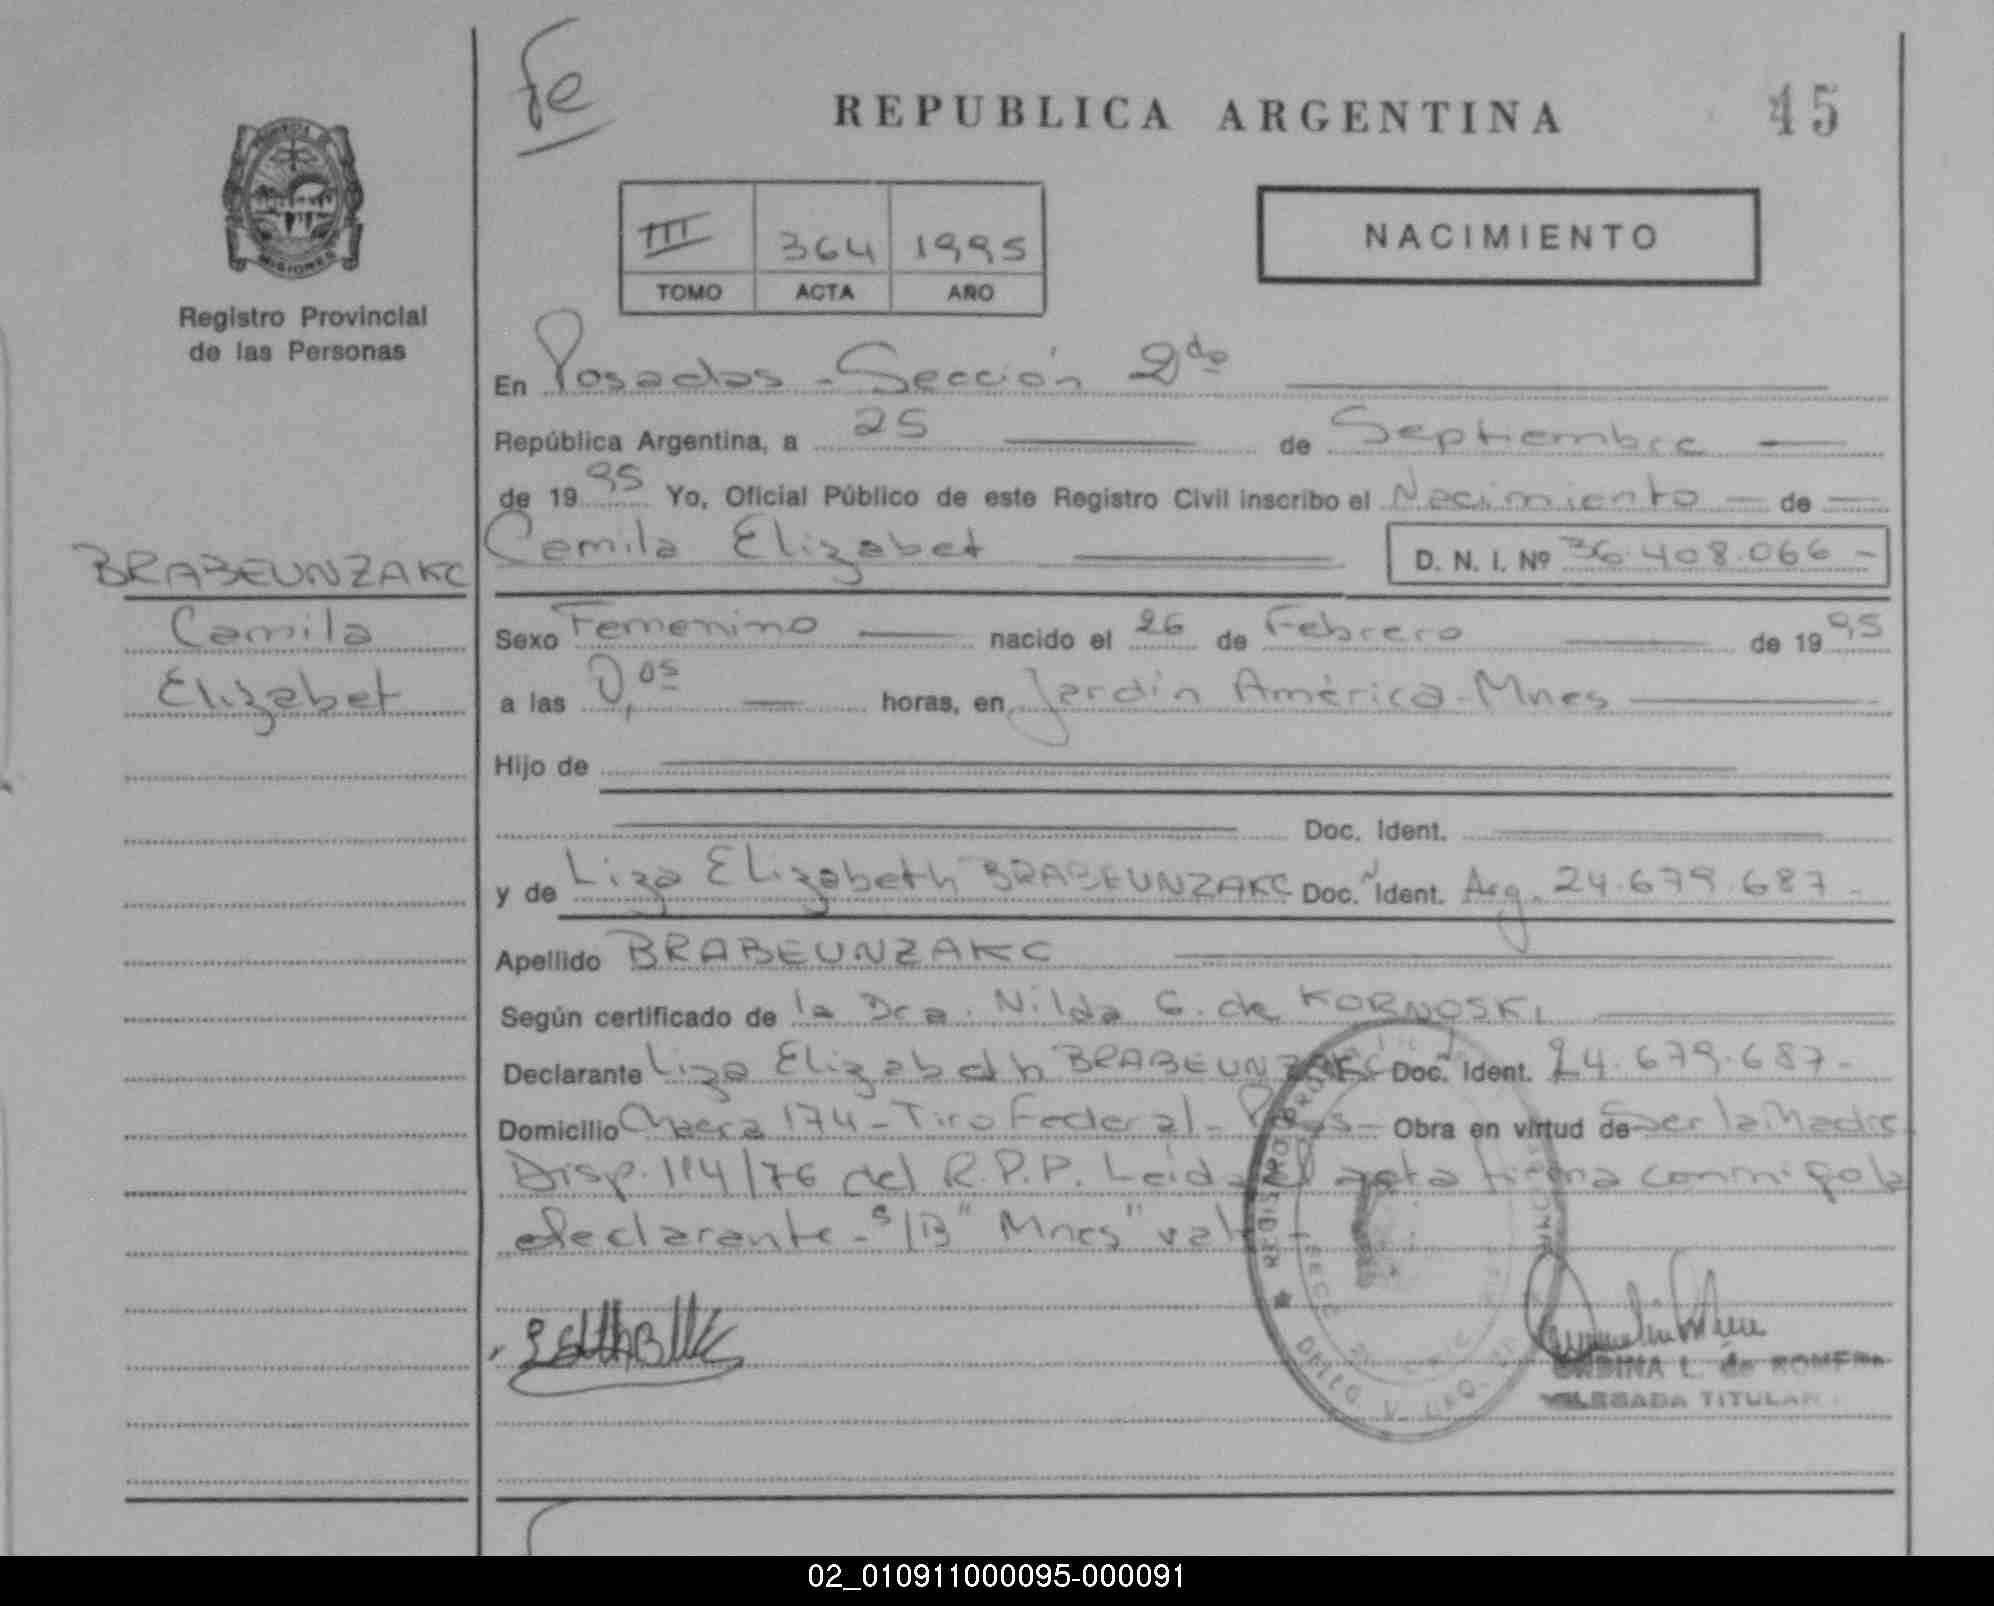 Fe
REPUBLICA ARGENTINA
45
MISIONES
Registro Provincial
de las Personas
III 364 1995
TOMO ACTA AÑO
NACIMIENTO
En Posadas - Sección 2da
República Argentina, a 25 de Septiembre
de 1995 Yo, Oficial Público de este Registro Civil inscribo el Nacimiento de
Camila Elizabet D. N. I. Nº 36.408.066 -
BRABEUNZAKC
Camila
Elizabet
Sexo Femenino nacido el 26 de Febrero de 1995
a las 0,05 horas, en Jardín América - Mnes
Hijo de
Doc. Ident.
y de Liza Elizabeth BRABEUNZAKC Doc. Ident. Arg. 24.679.687 -
Apellido BRABEUNZAKC
Según certificado de la Dra. Nilda G. de KORNOSKI
Declarante Liza Elizabeth BRABEUNZAKC Doc. Ident. 24.679.687 -
Domicilio Chacra 174 - Tiro Federal - Pdas - Obra en virtud de Ser la Madre
Disp. 114/76 del R.P.P. Leida el acta firma conmigo la
declarante - S/B "Mnes" vale
L. de ROMERO
DELEGADA TITULAR
02_010911000095-000091